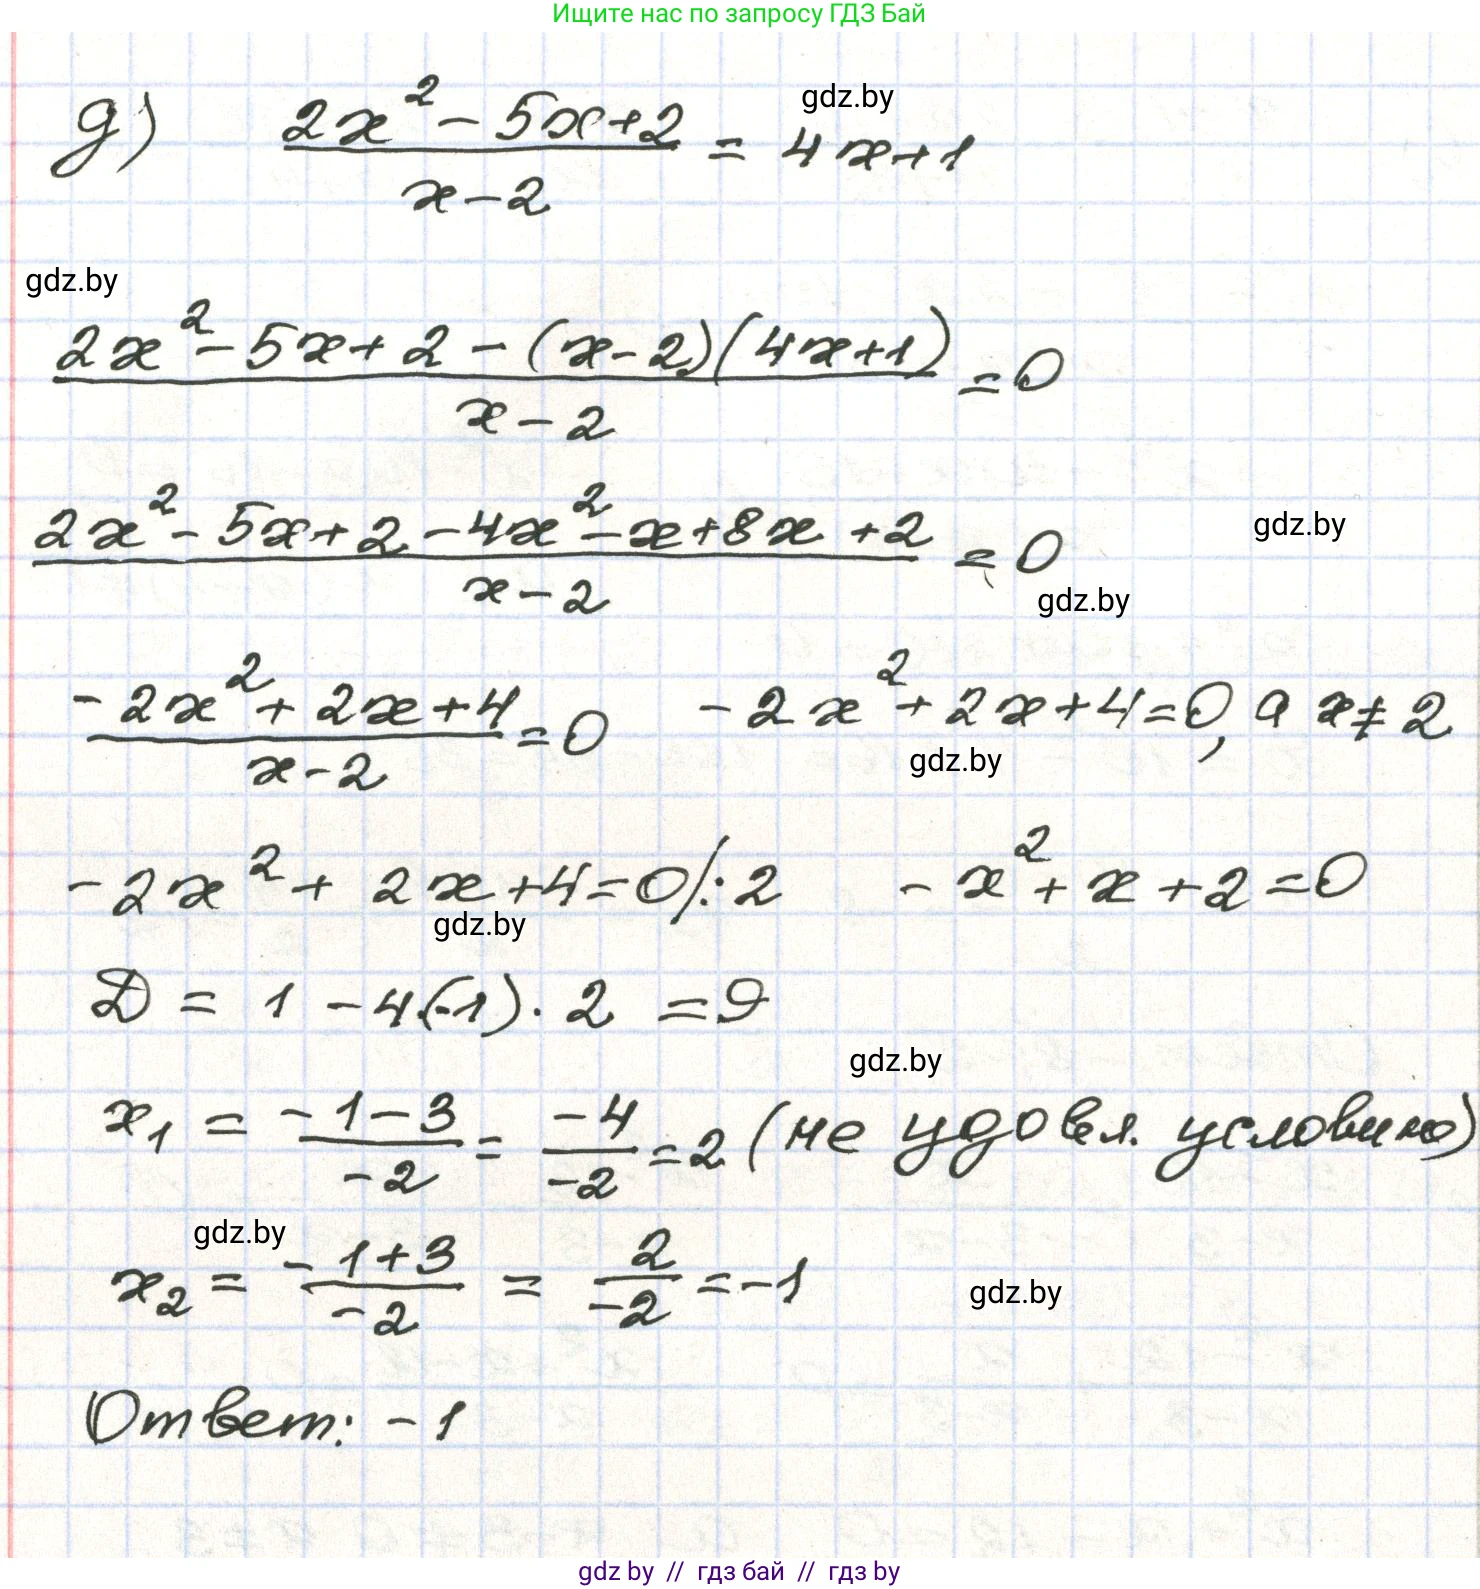 Ищите нас по запросу ГДЗ Бай
gdz.by
д) (2x² - 5x + 2)/(x - 2) = 4x + 1
gdz.by
(2x² - 5x + 2 - (x - 2)(4x + 1))/(x - 2) = 0
(2x² - 5x + 2 - 4x² - x + 8x + 2)/(x - 2) = 0
gdz.by
gdz.by
(-2x² + 2x + 4)/(x - 2) = 0   -2x² + 2x + 4 = 0, а x ≠ 2
gdz.by
-2x² + 2x + 4 = 0 /: 2   -x² + x + 2 = 0
gdz.by
D = 1 - 4·(-1)·2 = 9
gdz.by
x₁ = (-1 - 3)/(-2) = (-4)/(-2) = 2 (не удовл. условию)
gdz.by
x₂ = (-1 + 3)/(-2) = 2/(-2) = -1
gdz.by
Ответ: -1
gdz by // гдз бай // гдз by